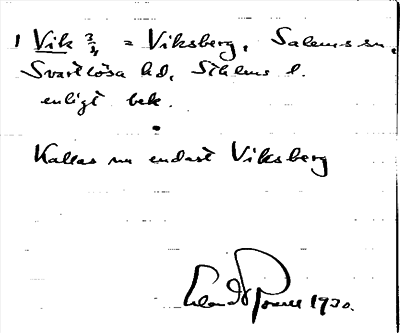 1 Vik 2/4 = Viksberg, Salems sn,
Svartlösa hd, Sthlms l.
enligt bek.
Kallas nu endast Viksberg
1930.